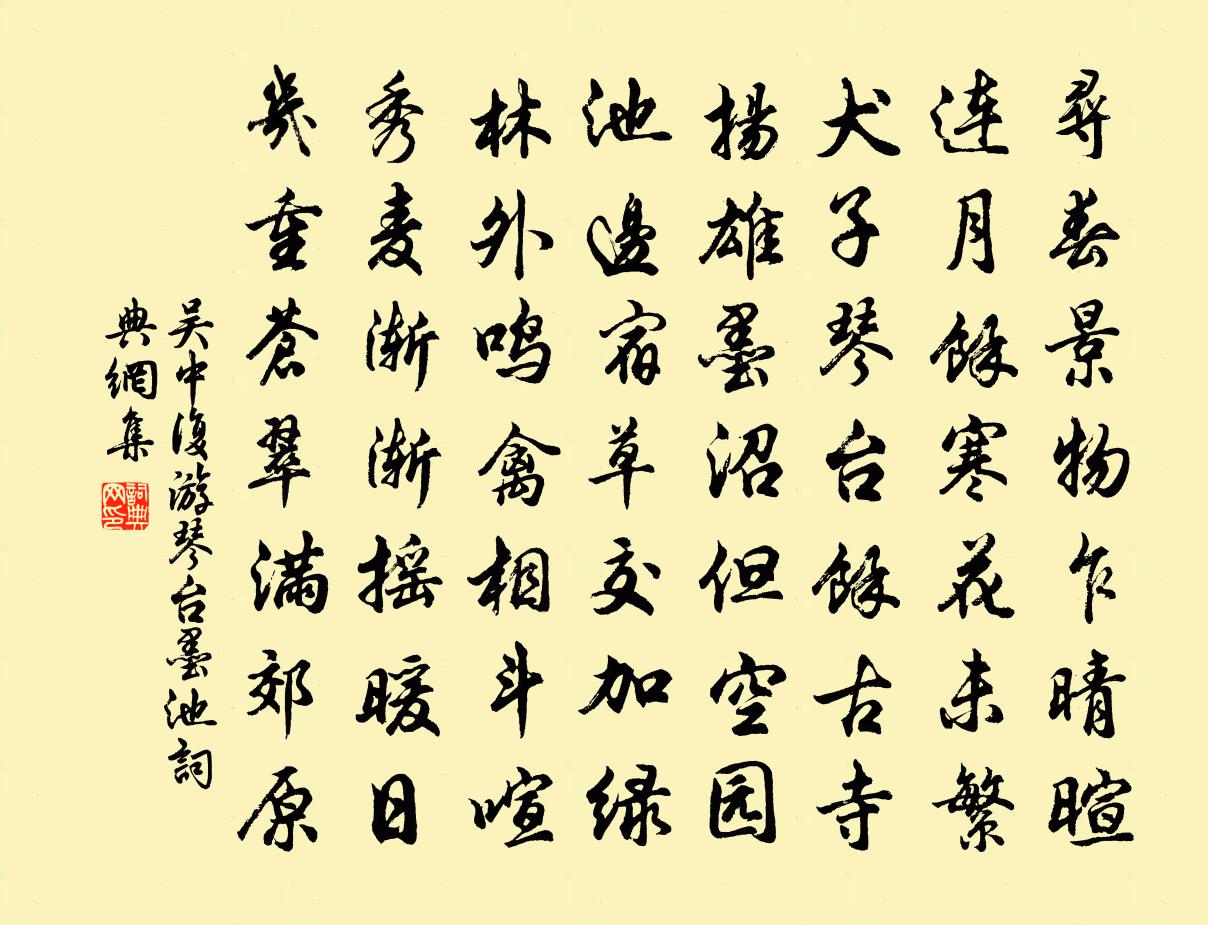 尋春景物乍晴暄
連月餘寒花未繁
犬子琴台餘古寺
揚雄墨沼但空园
池邊宿草交加绿
林外鸣禽相斗喧
秀麦渐渐摇暖日
幾重蒼翠满郊原
吴中復游琴台墨池詞
典網集
詞典
网印